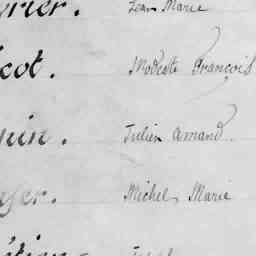 vrier. Jean Marie
cot. Modeste François
nin. Julien Amand
yer. Michel Marie